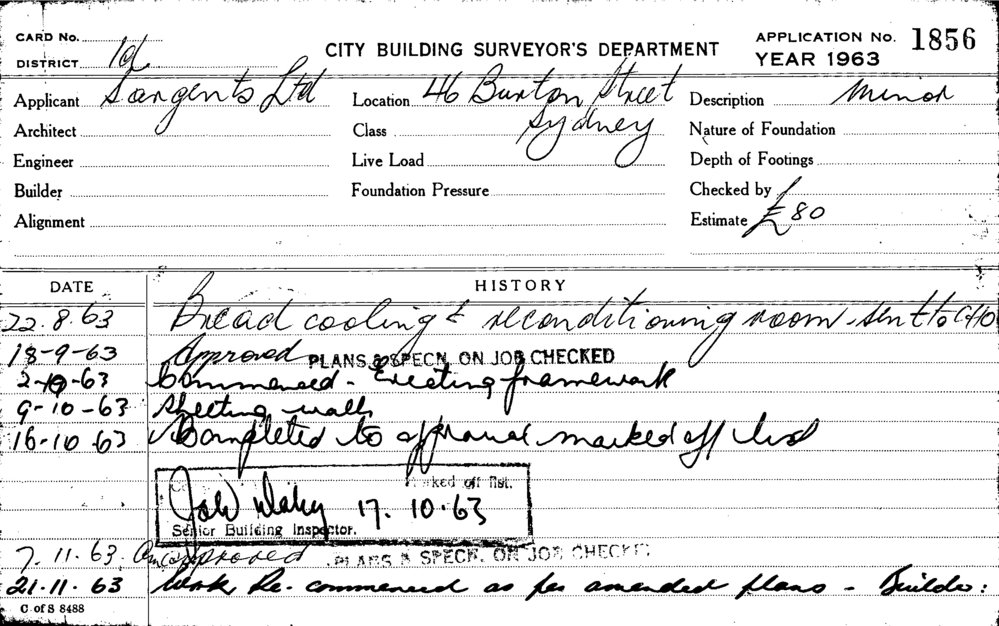 CARD No.
DISTRICT 1d
CITY BUILDING SURVEYOR'S DEPARTMENT
APPLICATION No. 1856
YEAR 1963
Applicant Sargents Ltd
Location 46 Burton Street
Sydney
Description Minor
Architect
Class
Nature of Foundation
Engineer
Live Load
Depth of Footings
Builder
Foundation Pressure
Checked by
Alignment
Estimate £80
DATE
HISTORY
22.8.63 Bread cooling & reconditioning room - sent to CHO
18-9-63 Approved PLANS & SPECN. ON JOB CHECKED
2-10-63 Commenced - Erecting framework
9-10-63 Sheeting walls
16-10 63 Completed to approval marked off list
Marked off list.
17. 10.63
Senior Building Inspector.
7.11.63. Approved PLANS & SPECN. ON JOB CHECKED
21.11.63 Work Re-commenced as per amended plans - Builder:
C of S 8488